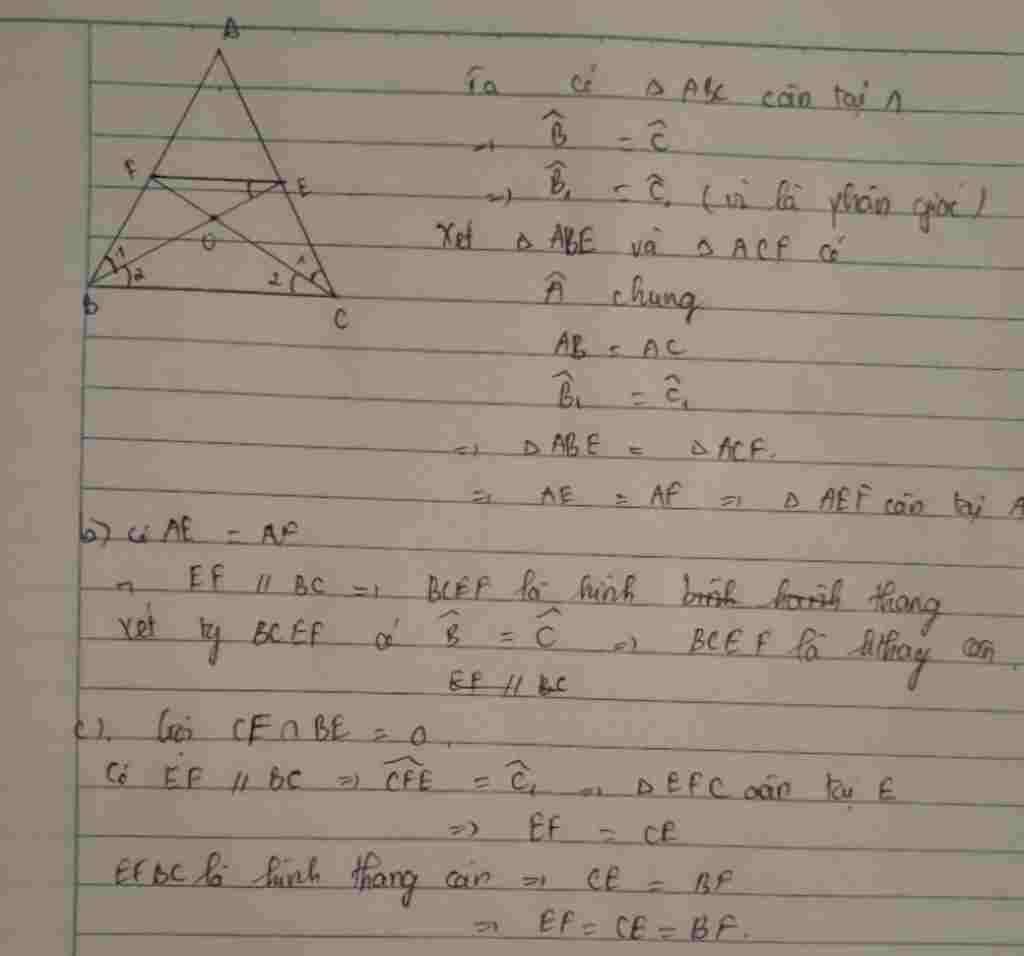 A
F
E
O
1
2
2
1
B
C
Ta có Δ ABC cân tại A
=> B̂ = Ĉ
=> B̂₁ = Ĉ₁ (vì là phân giác)
Xét Δ ABE và Δ ACF có
Â chung
AB = AC
B̂₁ = Ĉ₁
=> Δ ABE = Δ ACF.
=> AE = AF => Δ AEF cân tại A
b) Có AE = AF
=> EF // BC => BCEF là hình thang
Xét tg BCEF có B̂ = Ĉ => BCEF là hthang cân
EF // BC
c). Gọi CF ∩ BE = O.
Có EF // BC => CFE = Ĉ₁ => Δ EFC cân tại E
=> EF = CE
EFBC là hình thang cân => CE = BF
=> EF = CE = BF.